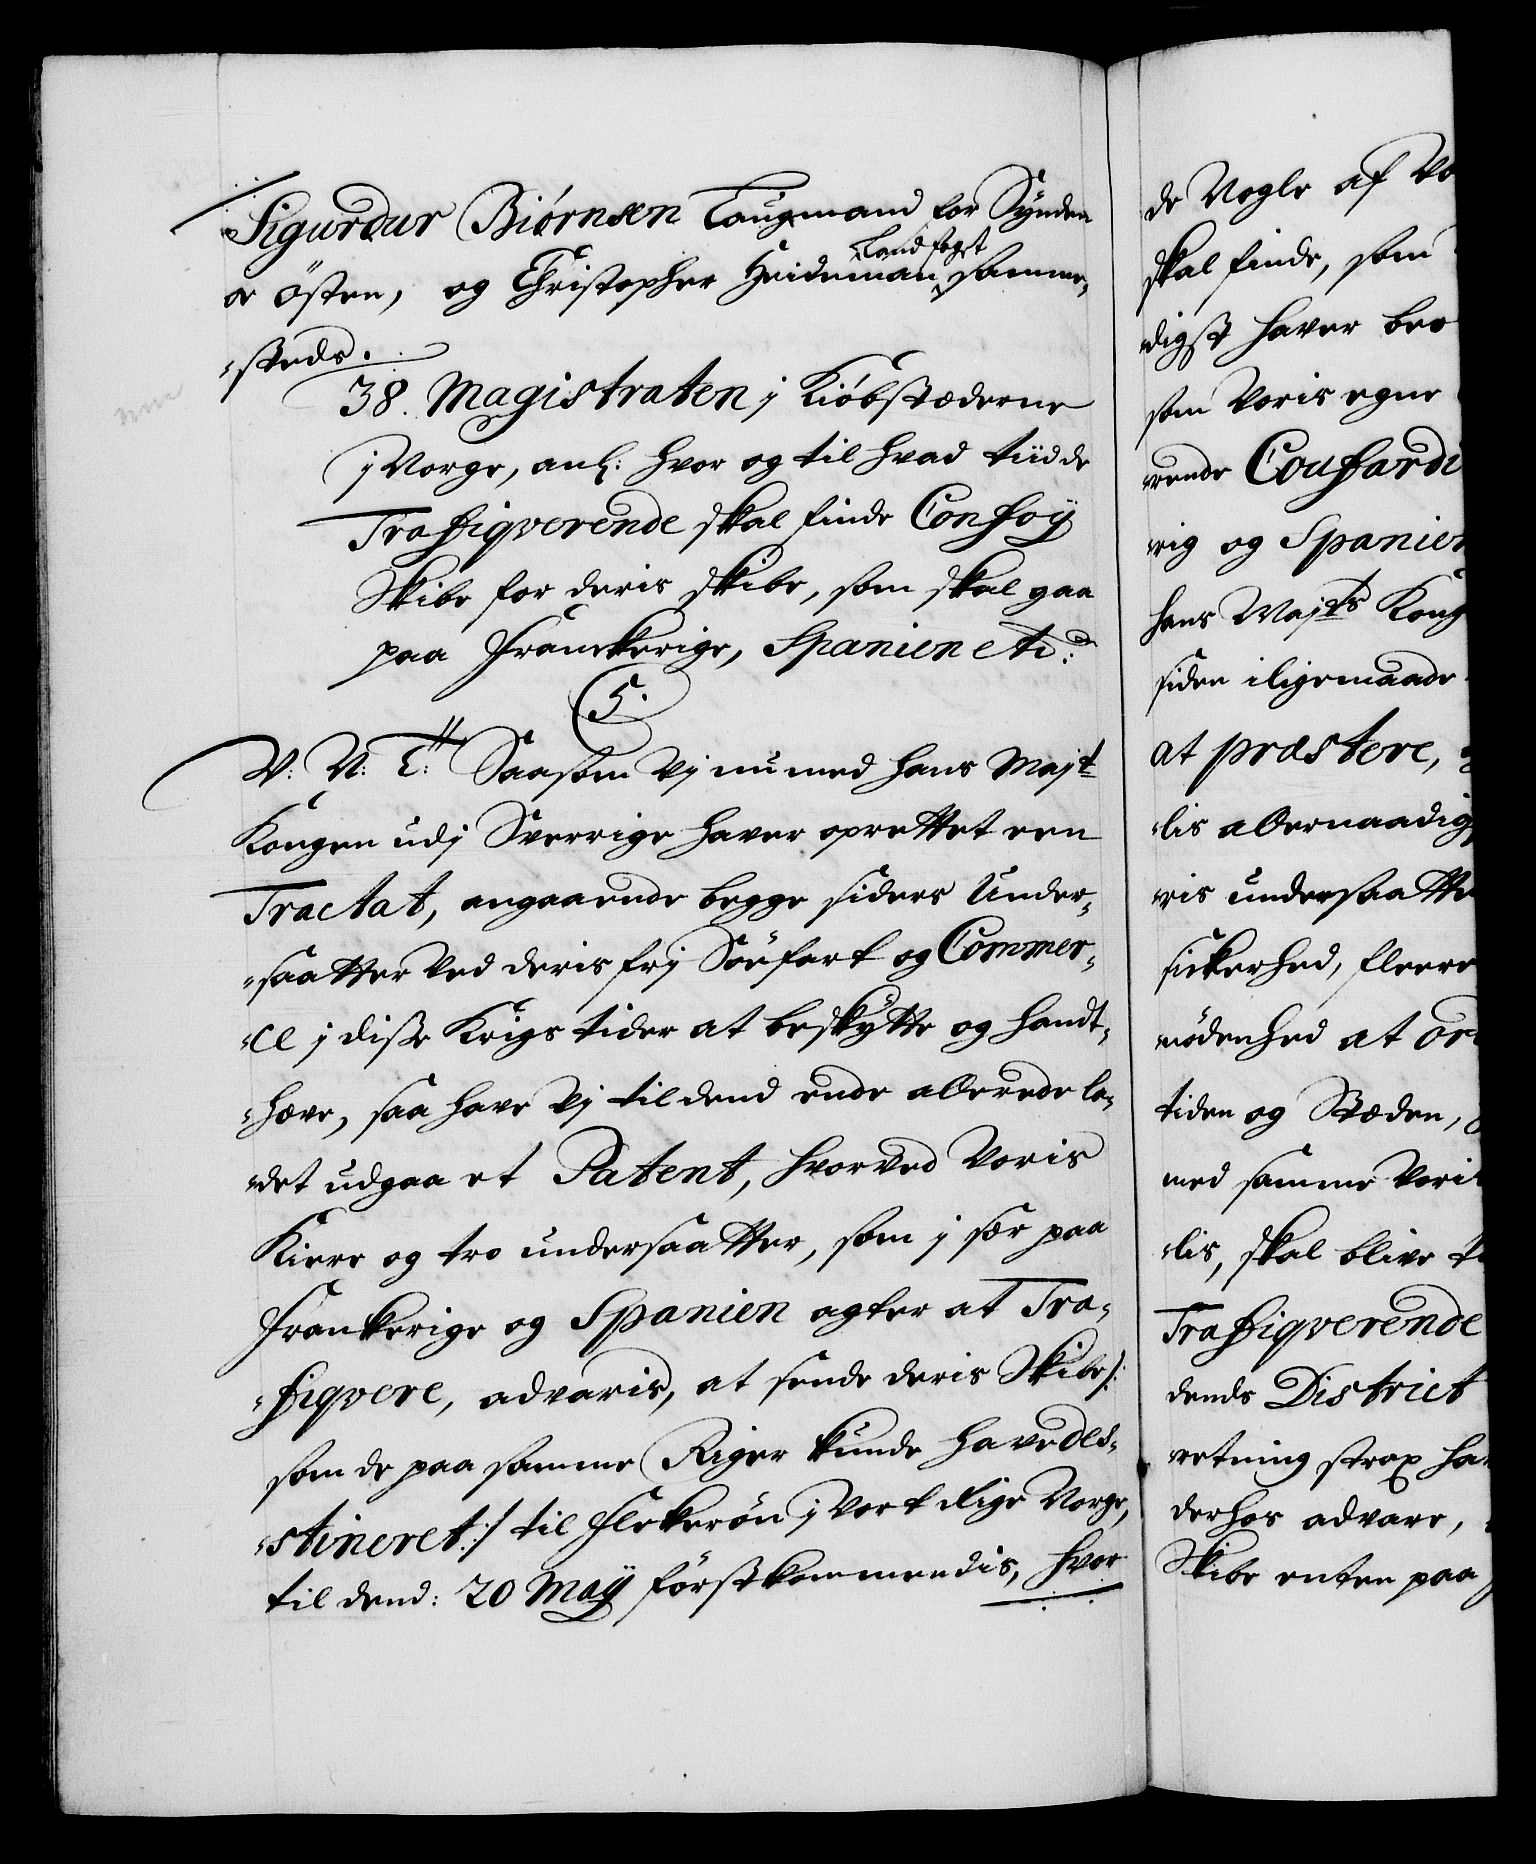 Sigurdur Biørnsen Laugmand for Synden
oc Østen, og Christopher Heideman Landfogt samme-
steds.
38. Magistraten j Kiöbstæderne
j Norge, anl: hvor og til hvad tiid de
Trafiqverende skal finde Confoÿ
Skibe for deris skibe, som skal gaa
paa Franckerige, Spanien etc:
5.
V: N: T: Saasom Vj nu med hans Majt
Kongen udj Sverrige haver oprettet een
Tractat, angaaende begge siders Under-
saatter ved deris frj Söefart og Commer-
ce j disse Krigs tider at beskÿtte og handt-
hæve, saa have Vj til dend ende allerede la-
det udgaa et Patent, hvorved Voris
Kiere og tro undersaatter, som j sær paa
Frankerige og Spanien agter at Tra-
fiqvere, advaris, at sende deris Skibe /:
som de paa samme Riger kunde have des-
tineret :/ til Flekerøn j Vort Rige Norge,
til dend: 20 Maÿ förstkommendis, hvor
de Nogle af Vo
skal finde, som
digst haver beo
som Voris egne
rende Coufardi
rig og Spanien
hans Majts Kong
siden iligemaade
at præstere,
lis allernaadig
ris undersaatte
sikerhed, fleere
nødenhed at or
tiden og Stæden,
med samme Voris
lis, skal blive
Trafiqverende
dends District
retning strax ha
derhos advare,
Skibe enten paa